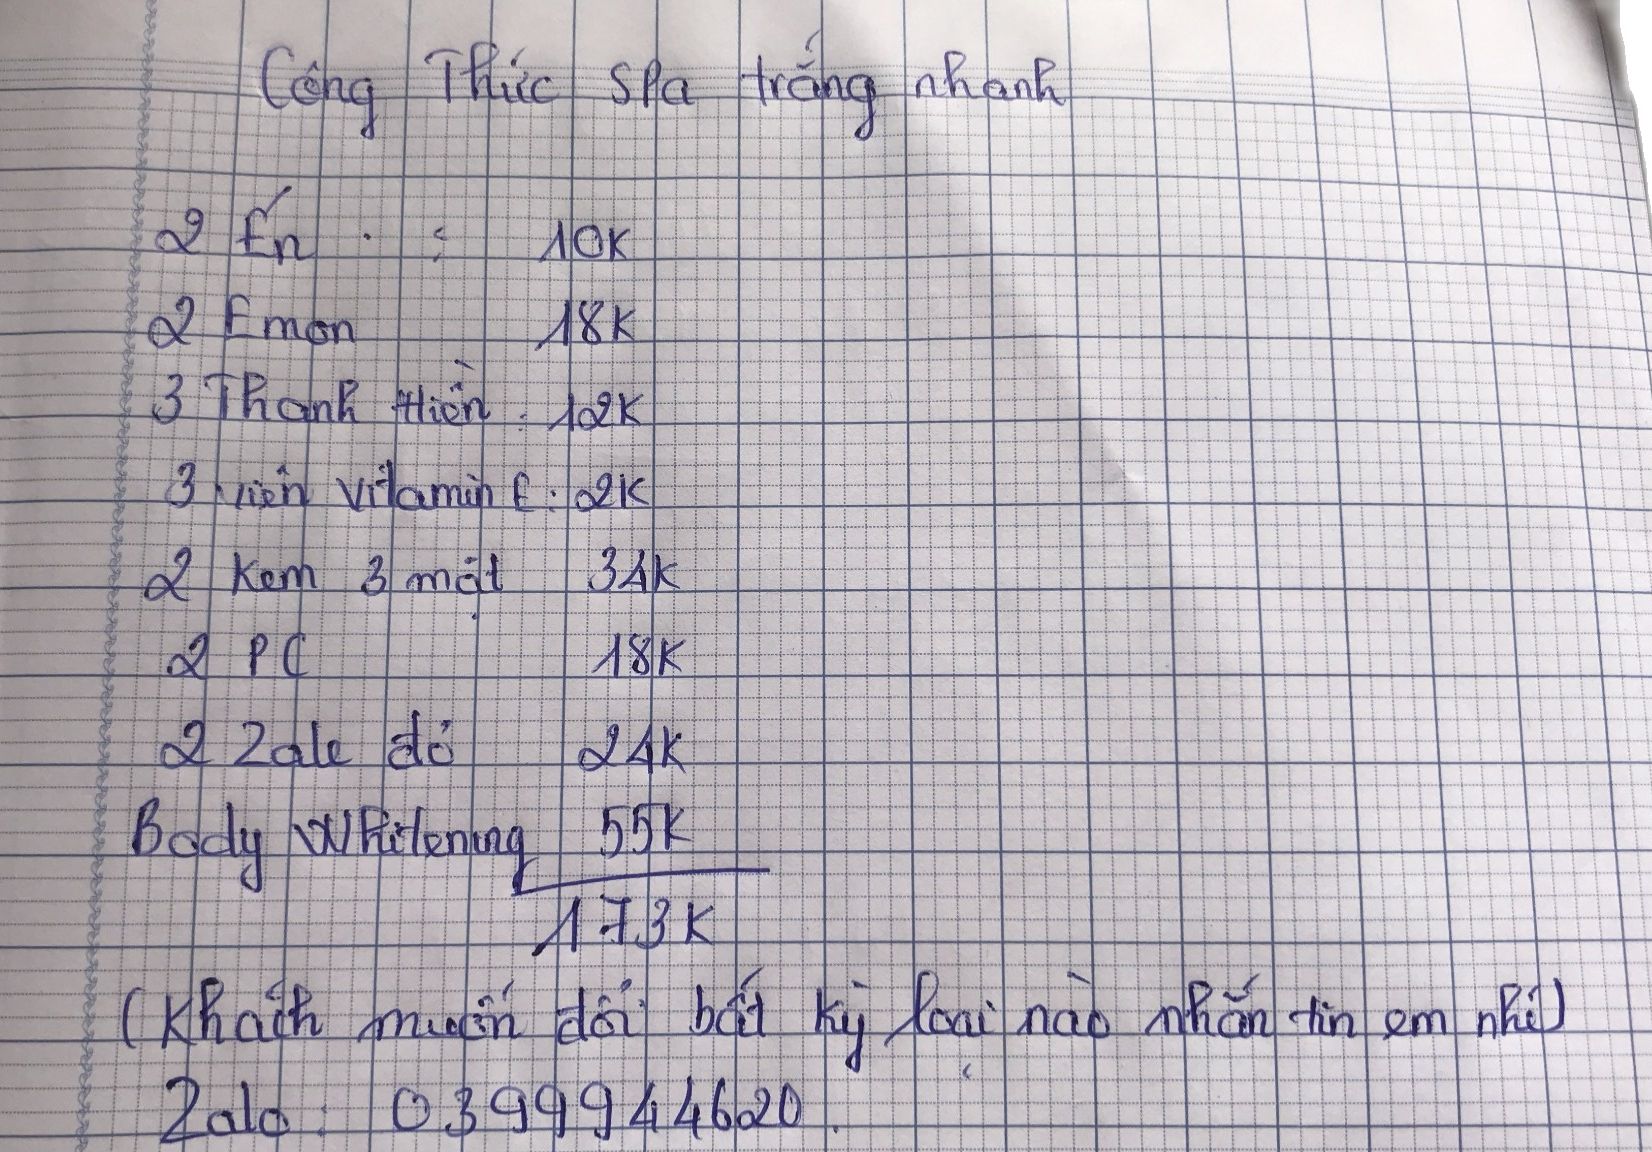 Công Thức Spa trắng nhanh
2 Én : 10K
2 Emon 18K
3 Thanh Hiền : 12K
3 viên vitamin E : 2K
2 Kem 3 mặt 34K
2 PC 18K
2 Zale đỏ 24K
Body Whitening 55K
173K
(Khách muốn đổi bất kỳ loại nào nhắn tin em nhé)
Zalo : 0399944620.